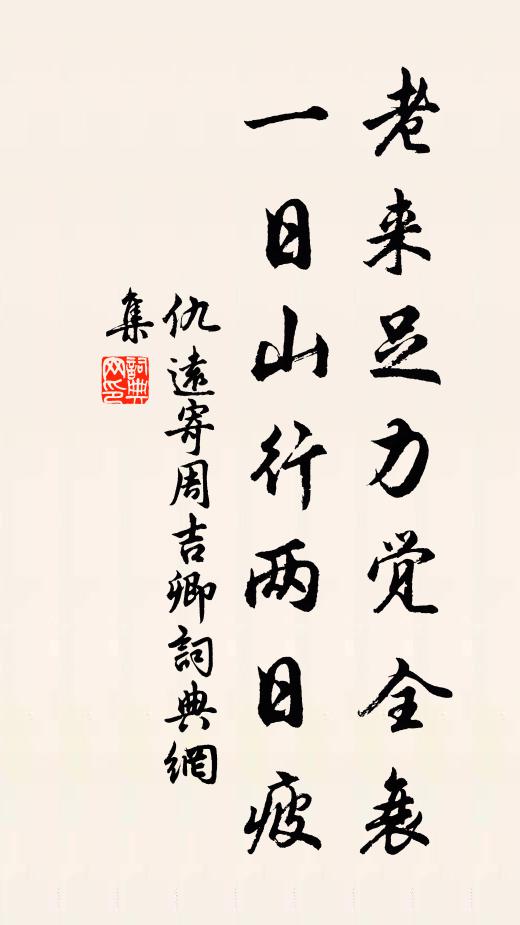 老来足力觉全衰
一日山行两日疲
仇遠寄周吉卿詞典網
集
詞典
网印